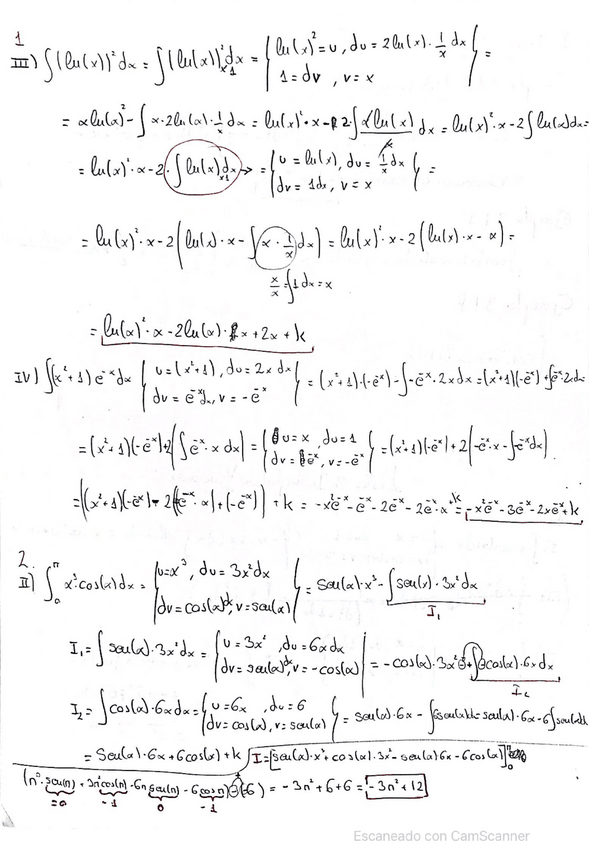 1
III) ∫(ln(x))² dx = ∫(ln(x))² dx = { ln(x)² = u, du = 2ln(x)·1/x dx
x1
1 = dv, v = x } =
= x ln(x)² - ∫ x·2ln(x)·1/x dx = ln(x)²·x - 2·∫ x ln(x)/x dx = ln(x)²·x - 2∫ ln(x)dx =
= ln(x)²·x - 2·∫ ln(x)dx → = { u = ln(x), du = 1/x dx
x1
dv = 1dx, v = x } =
= ln(x)²·x - 2(ln(x)·x - ∫ x·1/x dx) = ln(x)²·x - 2(ln(x)·x - x) =
x/x = ∫1dx = x
= ln(x)²·x - 2ln(x)·x + 2x + k
IV) ∫(x²+1)e⁻ˣdx { u = (x²+1), du = 2x dx
dv = e⁻ˣdx, v = -e⁻ˣ } = (x²+1)·(-e⁻ˣ) - ∫-e⁻ˣ·2x dx = (x²+1)(-e⁻ˣ) + ∫e⁻ˣ2xdx
= (x²+1)(-e⁻ˣ)+2(∫e⁻ˣ·x dx) = { u = x, du = 1
dv = e⁻ˣ, v = -e⁻ˣ } = (x²+1)(-e⁻ˣ)+2(-e⁻ˣ·x - ∫-e⁻ˣdx)
= ((x²+1)(-e⁻ˣ) + 2((-e⁻ˣ·x)+(-e⁻ˣ)) + k = -x²e⁻ˣ - e⁻ˣ - 2e⁻ˣ - 2e⁻ˣ·x + k = -x²e⁻ˣ - 3e⁻ˣ - 2xe⁻ˣ + k
2.
II) ∫₀^π x³·cos(x)dx = { u = x³, du = 3x²dx
dv = cos(x)dx, v = sen(x) } = sen(x)·x³ - ∫sen(x)·3x²dx
I₁
I₁ = ∫sen(x)·3x²dx = { u = 3x², du = 6xdx
dv = sen(x)dx, v = -cos(x) } = -cos(x)·3x² + ∫cos(x)·6x dx
I₂
I₂ = ∫cos(x)·6x dx = { u = 6x, du = 6
dv = cos(x), v = sen(x) } = sen(x)·6x - ∫6sen(x)dx = sen(x)·6x - 6∫sen(x)dx
= sen(x)·6x + 6cos(x) + k
I = [sen(x)·x³ + cos(x)·3x² - sen(x)6x - 6cos(x)]₀^π
(π³·sen(π) + 3π²cos(π) - 6π sen(π) - 6cos(π)) - (-6) = -3π² + 6 + 6 = -3π² + 12
=0 -1 0 -1
Escaneado con CamScanner